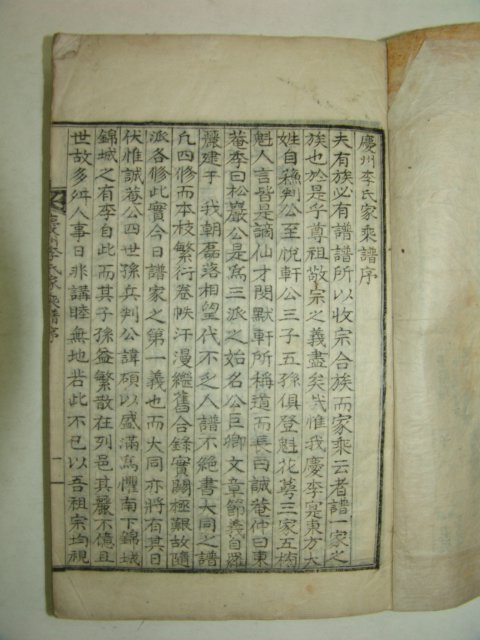 慶州李氏家乘譜序
夫有族必有譜譜所以收宗合族而家乘云者譜一家之
族也於是乎尊祖敬宗之義盡矣我惟我慶李寔東方大
姓自蘇判公至悅軒公三子五孫俱登魁花萼三家五桂
魁人言皆是謫仙才閔默軒所稱道而長曰誠菴仲曰東
菴季曰松巖公是爲三派之始名公巨卿文章節義自羅
麗建于 我朝磊落相望代不乏人譜不絶書大同之譜
凡四修而本枝繁衍卷帙汗漫繼舊合錄實關極艱故隨
派各修此實今日譜家之第一義也而大同亦將有其日
伏惟誠菴公四世孫兵判公諱碩以盛滿爲懼南下錦城
錦城之有李自此而其子孫益繁散在列邑其麗不億且
世故多舛人事日非講睦無地若此不已以吾祖宗均視
慶州李氏家乘譜序
一